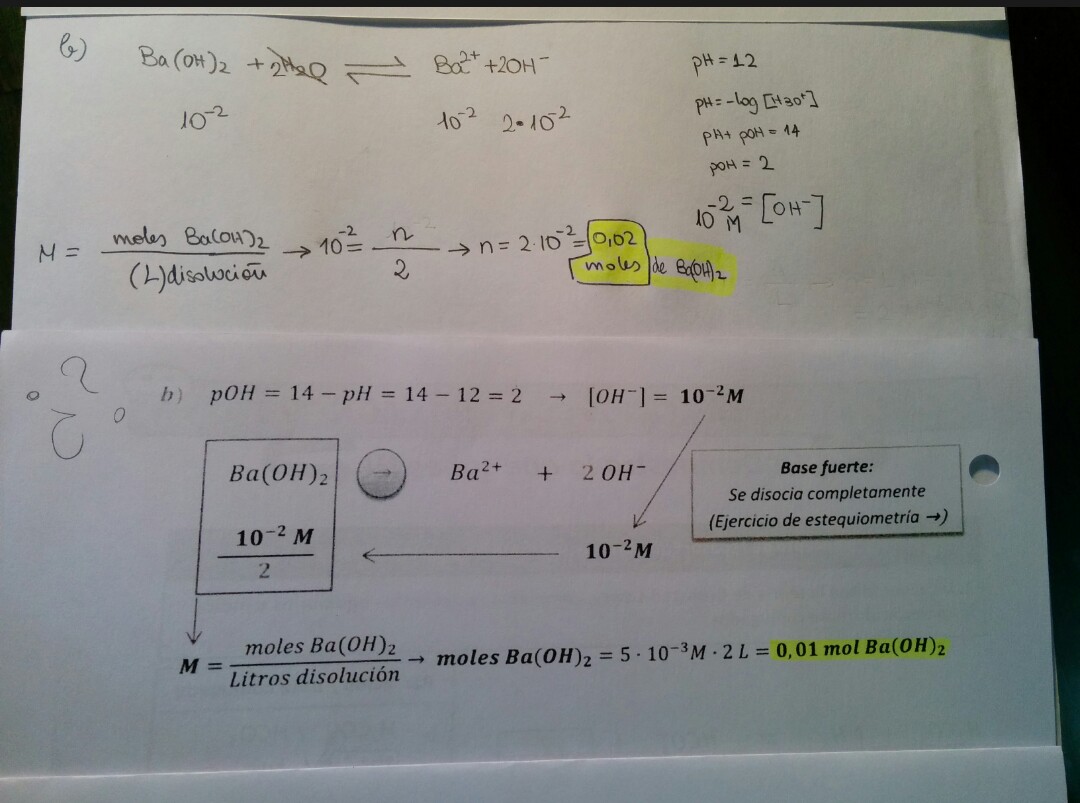 b)
Ba(OH)₂ + 2H₂O ⇌ Ba²⁺ + 2OH⁻
10⁻² 10⁻² 2·10⁻²
pH = 12
pH = -log [H3O⁺]
pH + pOH = 14
pOH = 2
10⁻² M = [OH⁻]
M = moles Ba(OH)₂ / (L) disolución → 10⁻² = n / 2 → n = 2·10⁻² = 0,02 moles de Ba(OH)₂
¿?
b) pOH = 14 − pH = 14 − 12 = 2 → [OH⁻] = 10⁻²M
Ba(OH)₂ → Ba²⁺ + 2 OH⁻
10⁻² M / 2 ← 10⁻²M
Base fuerte:
Se disocia completamente
(Ejercicio de estequiometría →)
M = moles Ba(OH)₂ / Litros disolución → moles Ba(OH)₂ = 5 · 10⁻³M · 2 L = 0,01 mol Ba(OH)₂